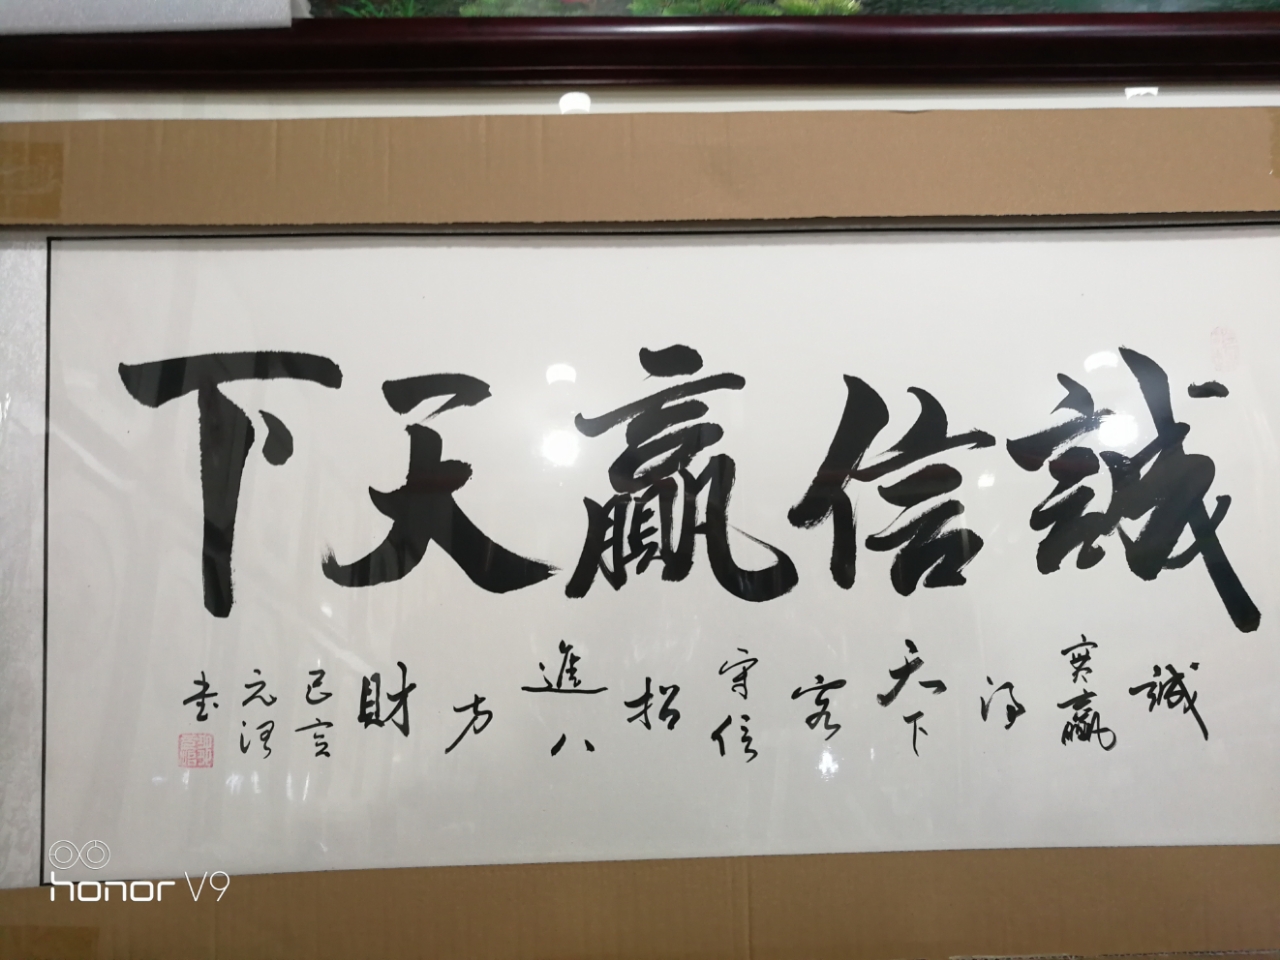 誠信贏天下
誠實贏得天下客
守信招進八方財
己亥元
書
honor V9